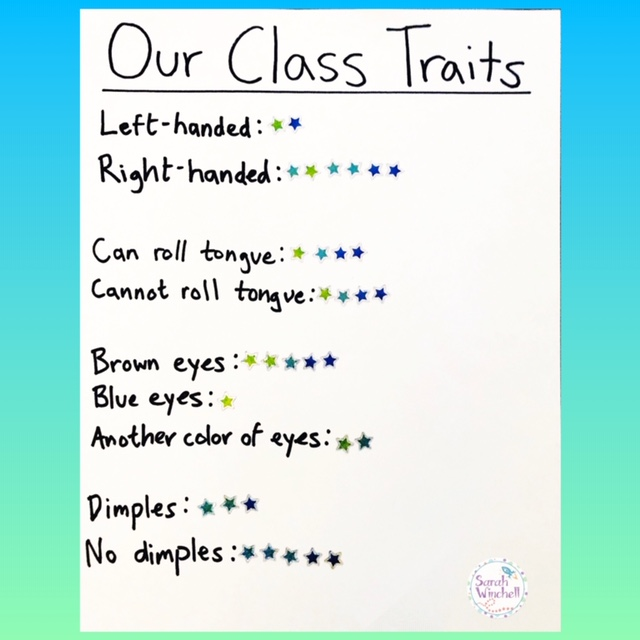 Our Class Traits
Left-handed:
Right-handed:
Can roll tongue:
Cannot roll tongue:
Brown eyes:
Blue eyes:
Another color of eyes:
Dimples:
No dimples:
Sarah
Winchell